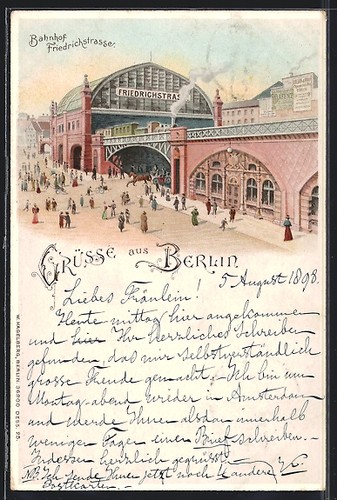 Bahnhof
Friedrichstrasse.
FRIEDRICHSTRAS
GRÜSSE aus BERLIN
5 August 1898.
Liebes Fräulein!
Heute mittag hier angekommen
und hier Ihr herzliches Schreiben
gefunden, das mir selbstverständlich
grosse Freude gemacht. Ich bin am
Montag-abend wieder in Amsterdam
und werde Ihnen alsdann innerhalb
weniger Tagen einen Brief schreiben. –
Indessen herzlich gegrüsst
NB. Ich sende Ihnen jetzt noch 4 andere
Postkarten. –
W. HAGELBERG, BERLIN